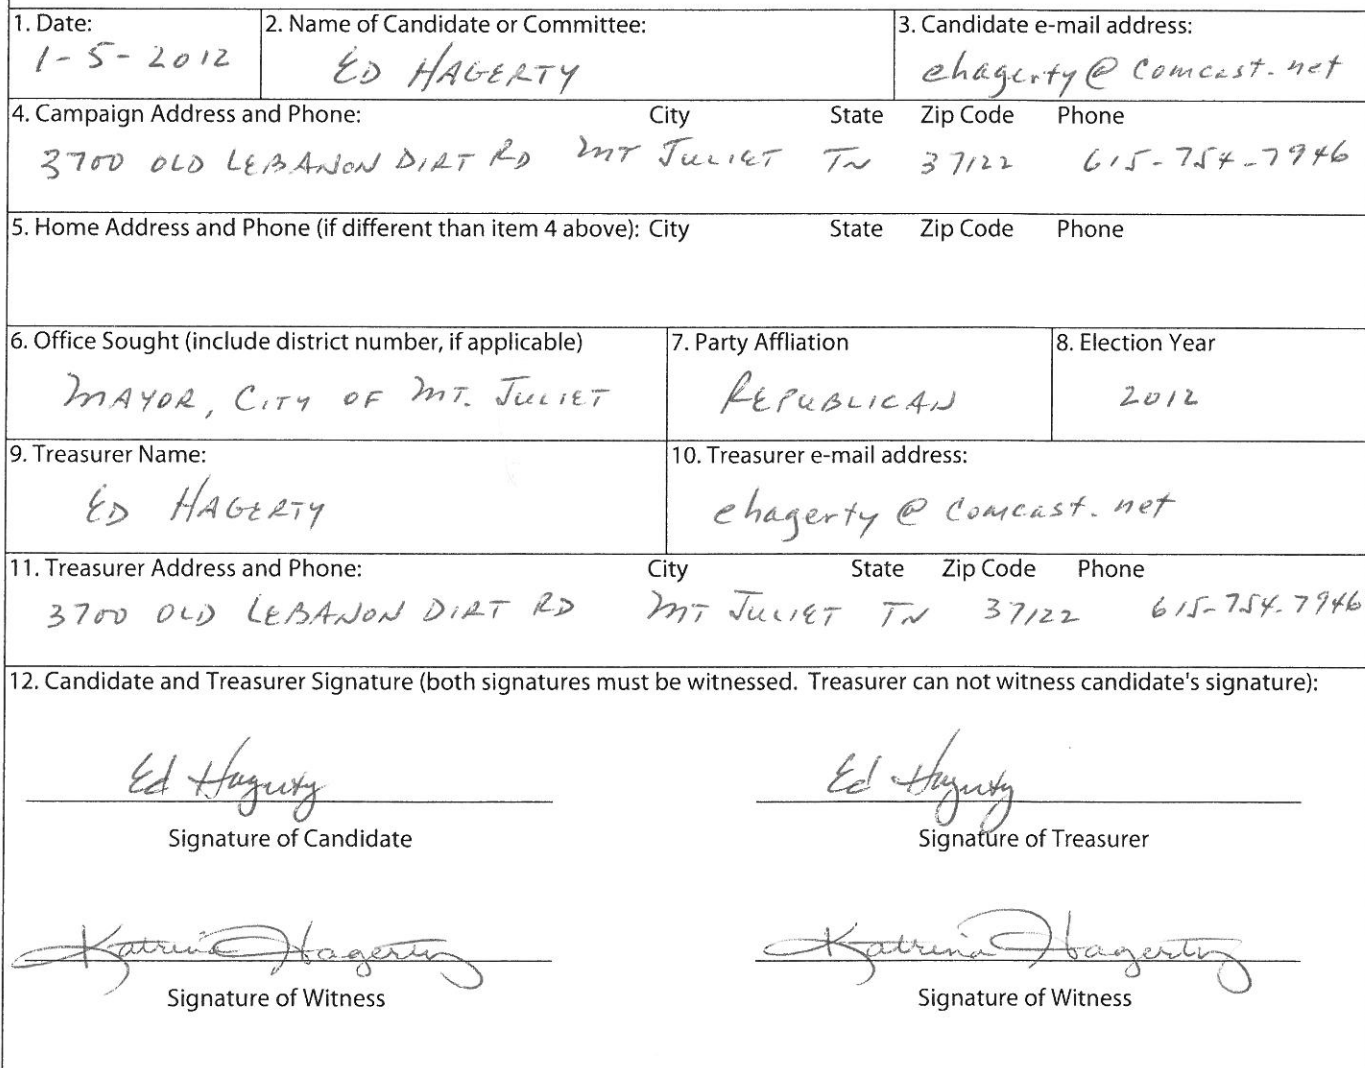 1. Date: 2. Name of Candidate or Committee: 3. Candidate e-mail address:
1-5-2012 ED HAGERTY ehagerty@comcast.net
4. Campaign Address and Phone: City State Zip Code Phone
3700 OLD LEBANON DIRT RD MT JULIET TN 37122 615-754-7946
5. Home Address and Phone (if different than item 4 above): City State Zip Code Phone
6. Office Sought (include district number, if applicable) 7. Party Affliation 8. Election Year
MAYOR, CITY OF MT. JULIET REPUBLICAN 2012
9. Treasurer Name: 10. Treasurer e-mail address:
ED HAGERTY ehagerty@comcast.net
11. Treasurer Address and Phone: City State Zip Code Phone
3700 OLD LEBANON DIRT RD MT JULIET TN 37122 615-754-7946
12. Candidate and Treasurer Signature (both signatures must be witnessed. Treasurer can not witness candidate's signature):
Ed Hagerty Ed Hagerty
Signature of Candidate Signature of Treasurer
Katrina Hagerty Katrina Hagerty
Signature of Witness Signature of Witness